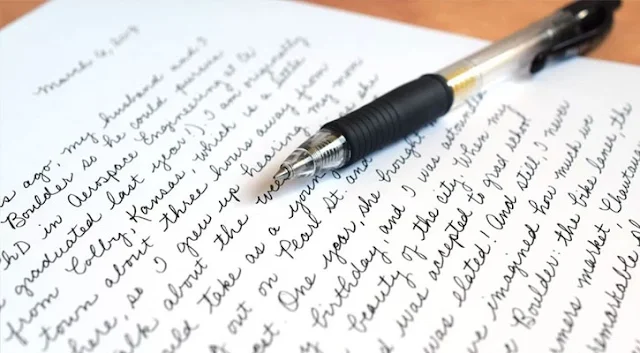 March 6,
s ago, my husband and I
Boulder so he could pursue
PhD in Aerospace Engineering at CU
graduated last year!) I am originally
from Colby, Kansas, which is a little
town about three hours away from
here, so I grew up hearing my mom
alk about the she
ould take as a young
g out on Pearl St. and
One year, she brought
birthday, and I was
beauty of the city. When my
d was accepted to grad school
was elated! And still, I never
ve imagined how much we
Boulder: the bike lanes, the
rmers market,